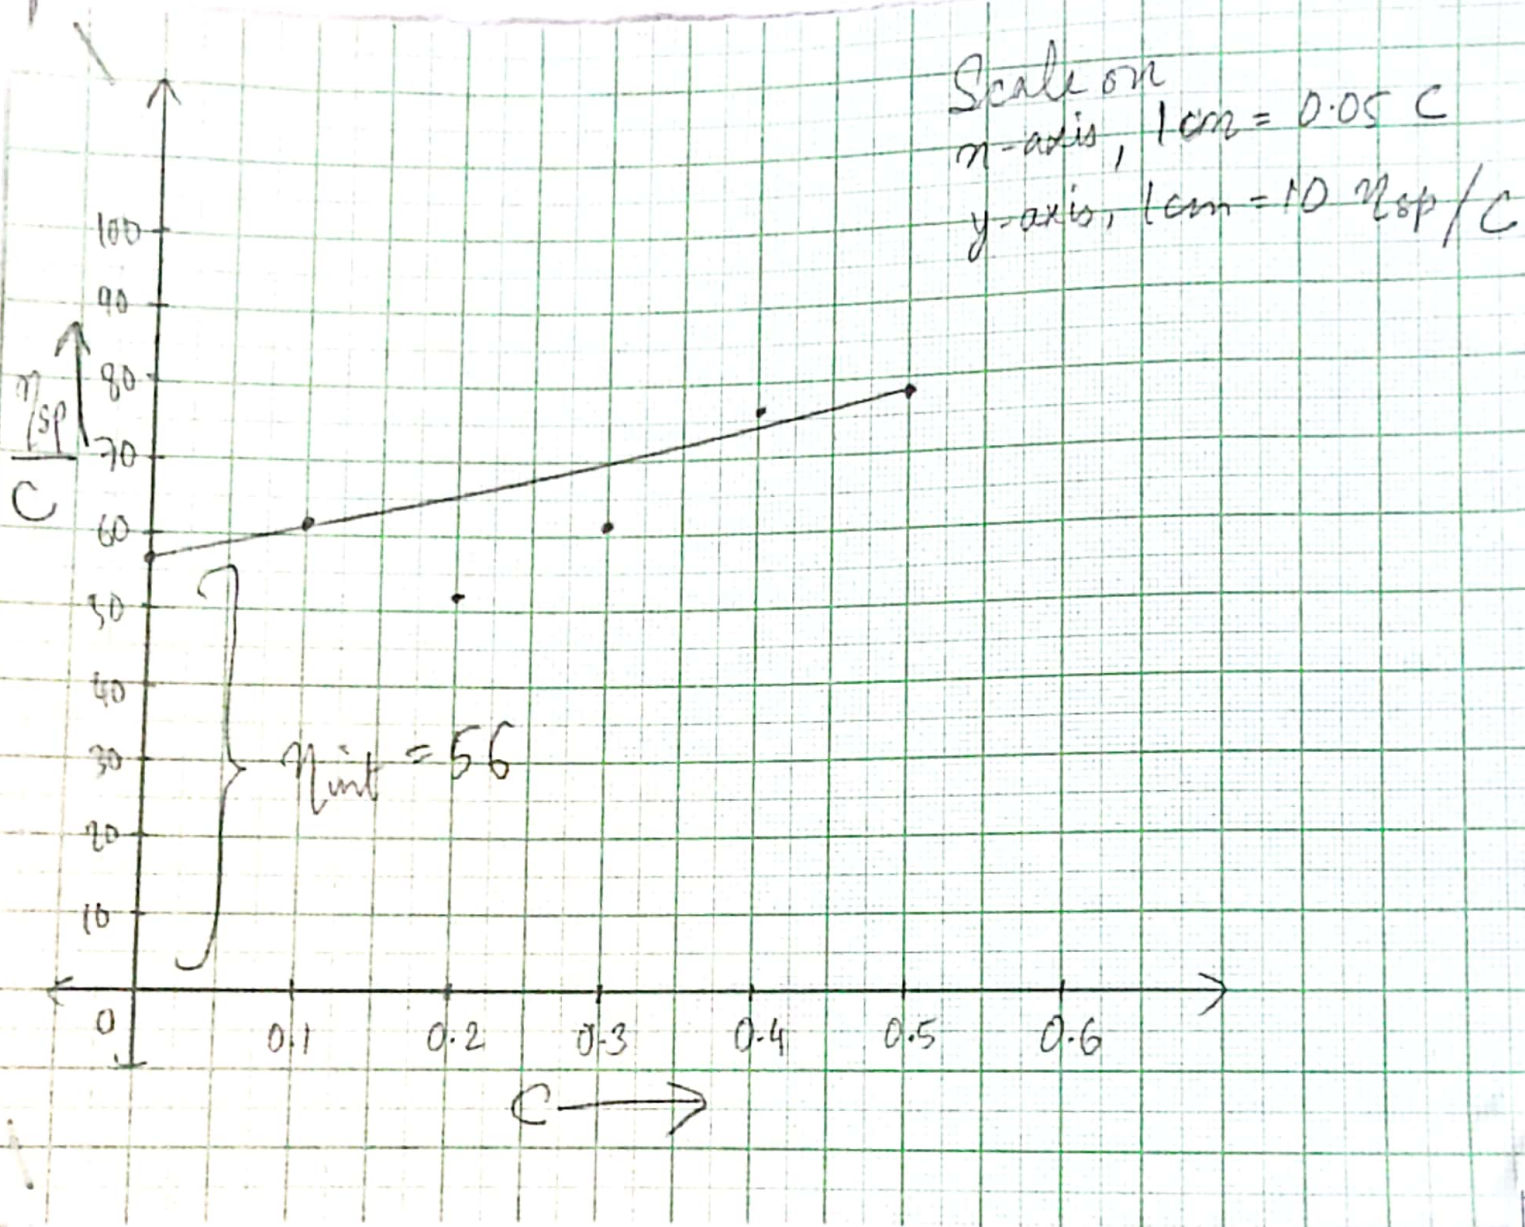 Scale on
x-axis, 1cm = 0.05 C
y-axis, 1cm = 10 ηsp/C
100
90
80
70
60
50
40
30
20
10
ηsp
C
ηint = 56
0 0.1 0.2 0.3 0.4 0.5 0.6
C